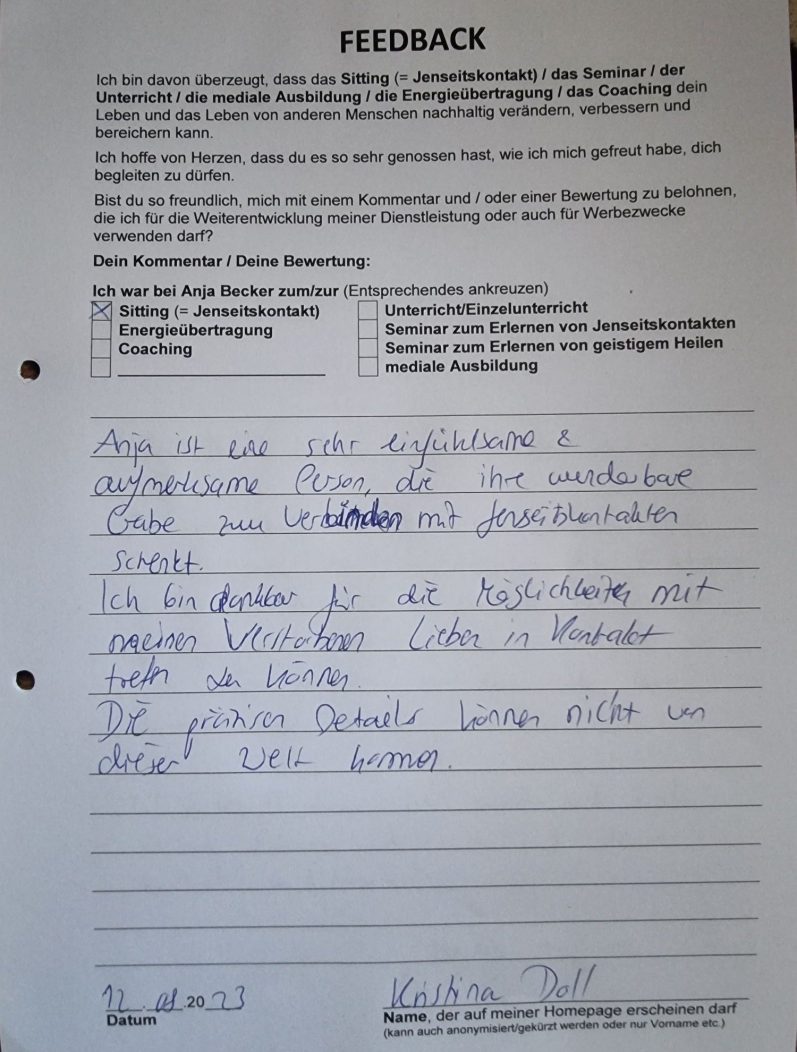 FEEDBACK
Ich bin davon überzeugt, dass das Sitting (= Jenseitskontakt) / das Seminar / der
Unterricht / die mediale Ausbildung / die Energieübertragung / das Coaching dein
Leben und das Leben von anderen Menschen nachhaltig verändern, verbessern und
bereichern kann.
Ich hoffe von Herzen, dass du es so sehr genossen hast, wie ich mich gefreut habe, dich
begleiten zu dürfen.
Bist du so freundlich, mich mit einem Kommentar und / oder einer Bewertung zu belohnen,
die ich für die Weiterentwicklung meiner Dienstleistung oder auch für Werbezwecke
verwenden darf?
Dein Kommentar / Deine Bewertung:
Ich war bei Anja Becker zum/zur (Entsprechendes ankreuzen)
Sitting (= Jenseitskontakt)
Energieübertragung
Coaching
Unterricht/Einzelunterricht
Seminar zum Erlernen von Jenseitskontakten
Seminar zum Erlernen von geistigem Heilen
mediale Ausbildung
Anja ist eine sehr einfühlsame &
aufmerksame Person, die ihre wunderbare
Gabe zum Verbinden mit Jenseitskontakten
schenkt.
Ich bin dankbar für die Möglichkeiten mit
meinen Verstorbenen Lieben in Kontakt
treten zu können.
Die präzisen Details können nicht von
dieser Welt kommen.
12. .2023
Datum
Kristina Doll
Name, der auf meiner Homepage erscheinen darf
(kann auch anonymisiert/gekürzt werden oder nur Vorname etc.)